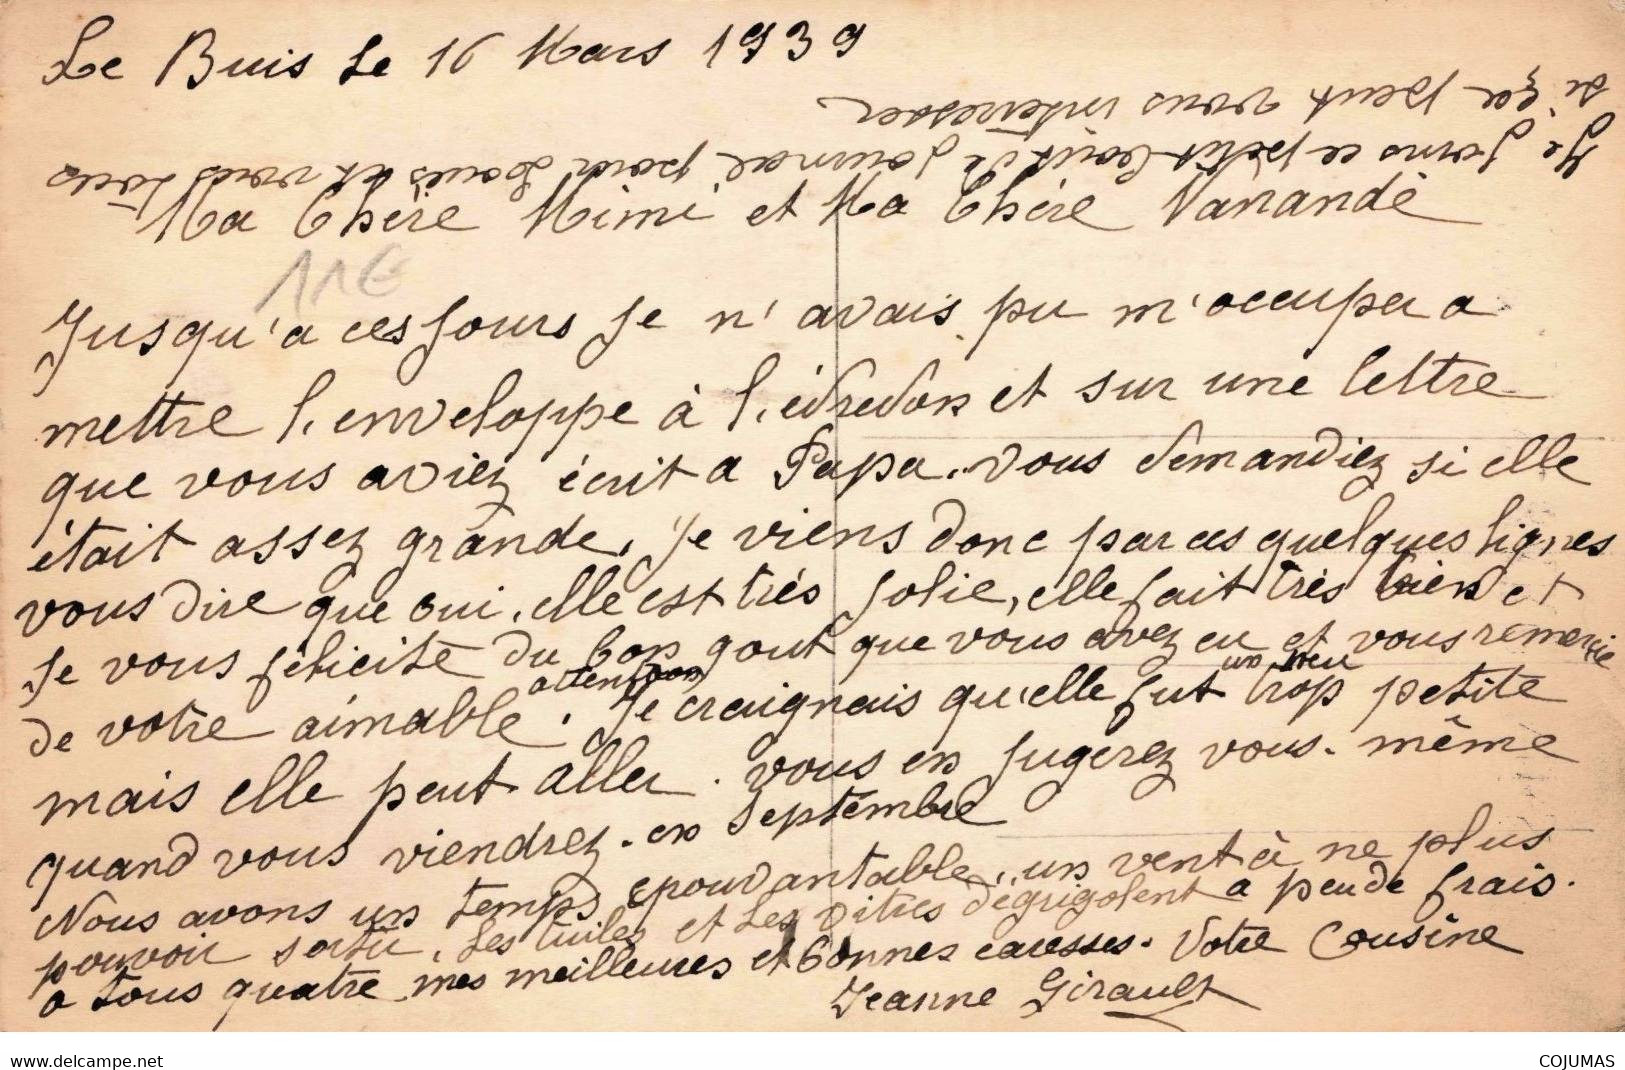 Le Buis le 16 Mars 1939
Je joins ce petit bout de journal pour Louis et vous tous
si ça peut vous interesser
Ma Chère Mimi et Ma Chère Nanandé
11€
Jusqu'a ces jours je n'avais pu m'occuper a
mettre l'enveloppe à l'édredon et sur une lettre
que vous aviez écrit a Papa. vous demandiez si elle
était assez grande. Je viens donc par ces quelques lignes
vous dire que oui. elle est très jolie, elle fait très bien et
je vous félicite du bon gout que vous avez eu et vous remercie
de votre aimable attention. Je craignais qu'elle fut un peu trop petite
mais elle peut aller. vous en jugerez vous-même
quand vous viendrez en septembre
Nous avons un temps epouvantable, un vent à ne plus
pouvoir sortir. Les tuiles et les vitres dégrigolent a peu de frais.
a tous quatre mes meilleures et bonnes caresses. Votre Cousine
Jeanne Girault
www.delcampe.net
COJUMAS